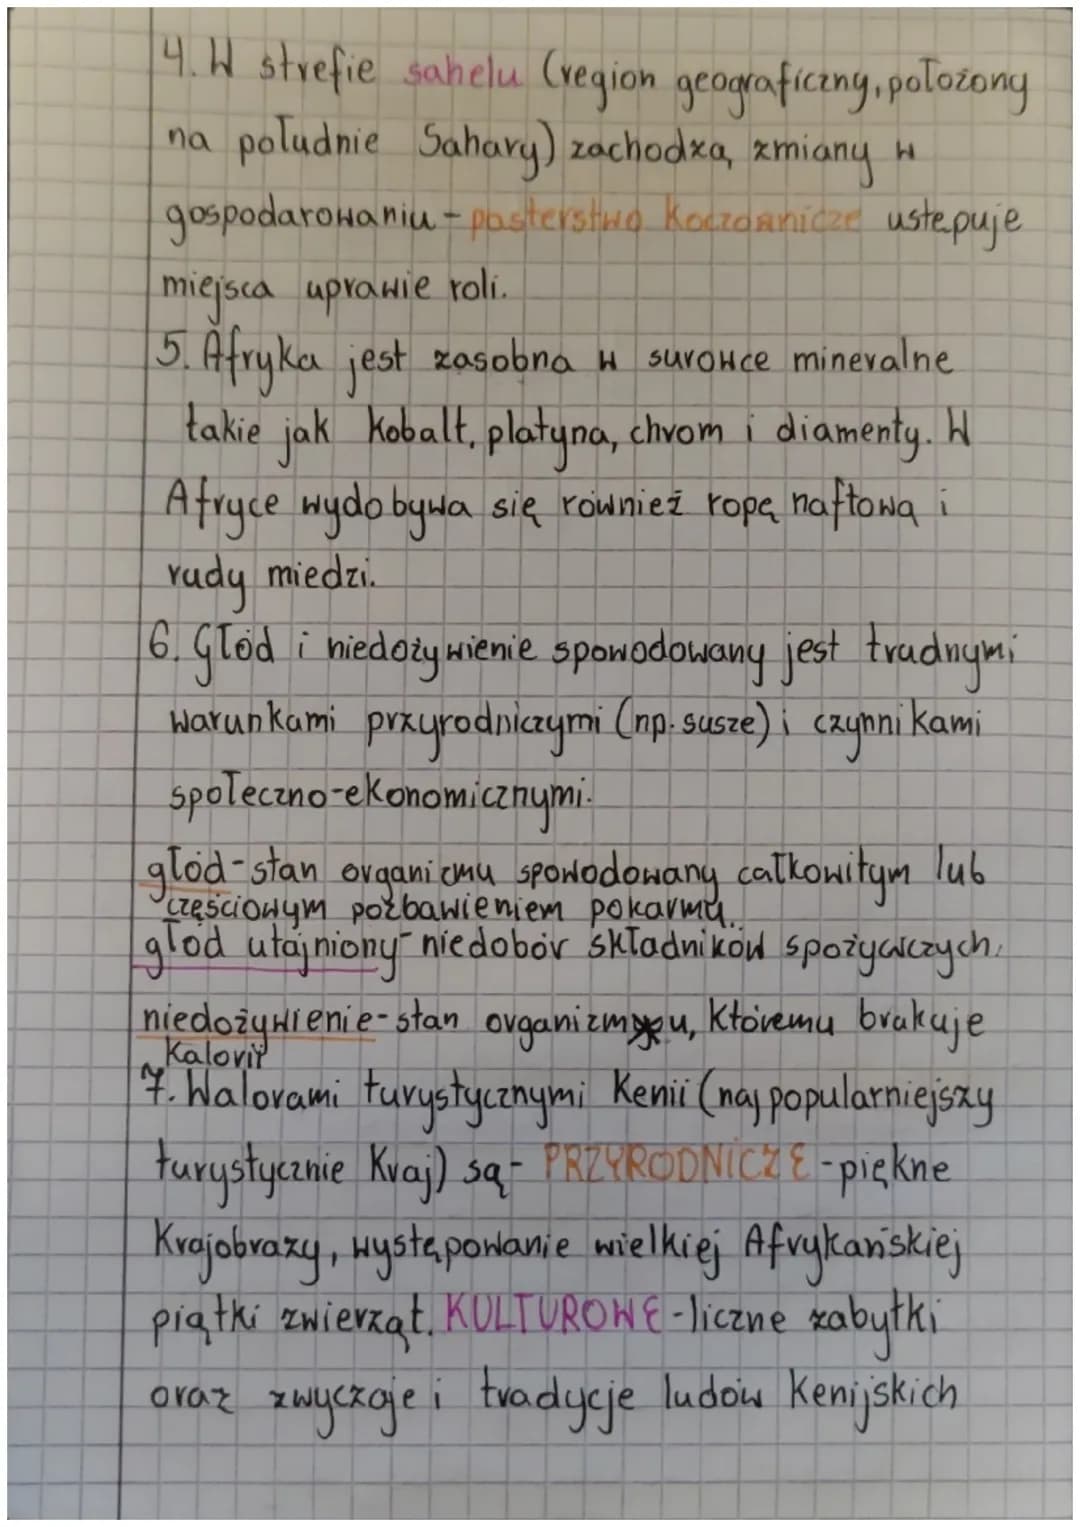 4. W strefie sahelu (region geograficzny, położony
na południe Sahary) zachodzą zmiany w
gospodarowaniu - pasterstwo koczownicze ustępuje
miejsca uprawie roli.
5. Afryka jest zasobna w surowce mineralne
takie jak kobalt, platyna, chrom i diamenty. W
Afryce wydobywa się również ropę naftową i
rudy miedzi.
6. Głód i niedożywienie spowodowany jest trudnymi
warunkami przyrodniczymi (np. susze) i czynnikami
społeczno-ekonomicznymi.
głód - stan organizmu spowodowany całkowitym lub
częściowym pozbawieniem pokarmu.
głód utajniony - niedobór składników spożywczych.
niedożywienie - stan organizmu, któremu brakuje
kalorii
7. Walorami turystycznymi Kenii (najpopularniejszy
turystycznie kraj) są - PRZYRODNICZE - piękne
krajobrazy, występowanie wielkiej Afrykańskiej
piątki zwierząt. KULTUROWE - liczne zabytki
oraz zwyczaje i tradycje ludów Kenijskich